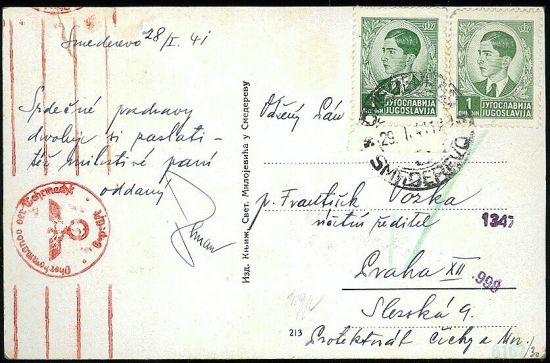 Smederevo 28/I. 41
Srdečné pozdravy
dvoluji si zaslati
též milostivé paní
oddaný
Oberkommando der Wehrmacht
Изд. Књиж. Свет. Милојевића у Смедереву
213
ЈУГОСЛАВИЈА
JUGOSLAVIJA
1
ЈУГОСЛАВИЈА
JUGOSLAVIJA
29. I. 41
SMEDEREVO
Vážený Pán
p. František Vozka
účetní ředitel
1347
Praha XII
998
Slezská 9.
Protektorát Čechy a Mor.